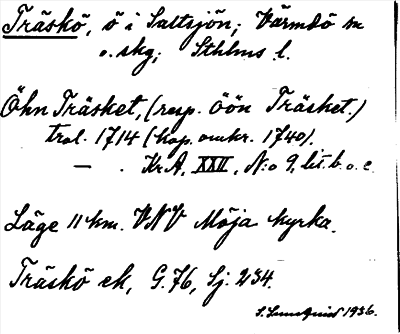 Träskö, ö i Saltsjön; Värmdö sn
o. skg; Sthlms l.
Öhn Träsket, (resp. öön Träsket.)
trol. 1714 (kop. omkr. 1740).
— . Kr.A, XXII, N:o 9, lit. b. o. c.
Läge 11 km. VNV Möja kyrka.
Träskö ek, G. 76, Sj. 234.
S. Lundquist 1936.